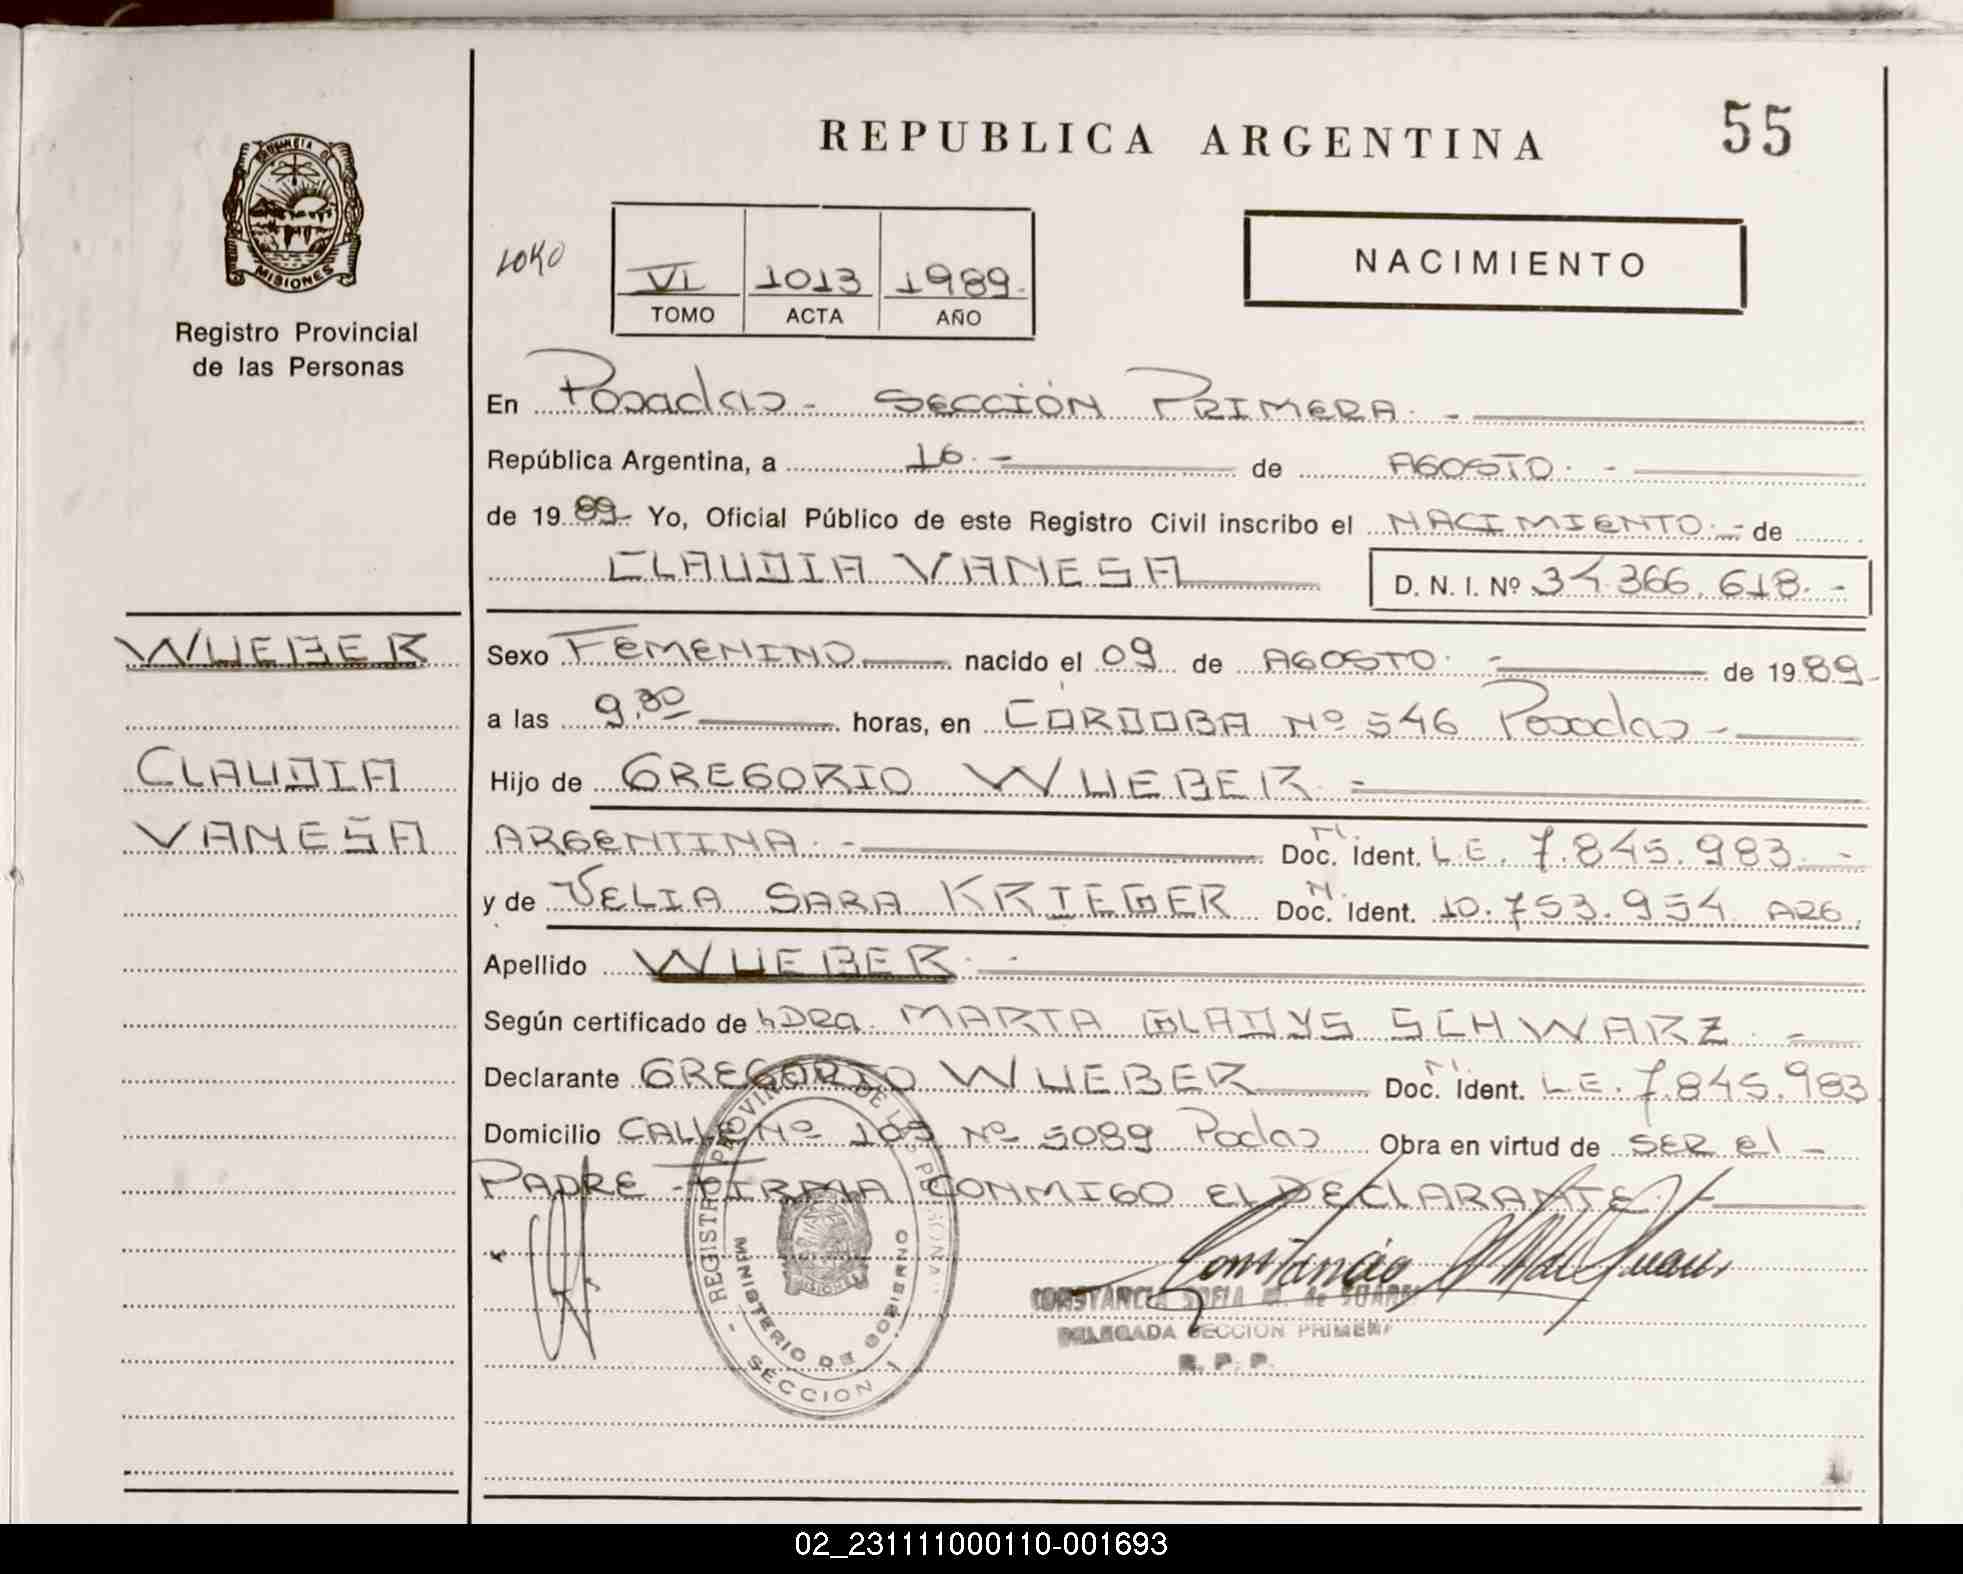 REPUBLICA ARGENTINA
55
PROVINCIA DE
MISIONES
Registro Provincial
de las Personas
VI 1013 1989.
TOMO ACTA AÑO
NACIMIENTO
En Posadas - SECCIÓN PRIMERA. -
República Argentina, a 16. - de AGOSTO. -
de 1989- Yo, Oficial Público de este Registro Civil inscribo el NACIMIENTO. - de
CLAUDIA VANESA D. N. I. Nº 34.366.618. -
WUEBER
CLAUDIA
VANESA
Sexo FEMENINO nacido el 09 de AGOSTO. - de 1989-
a las 9,30 horas, en CÓRDOBA Nº 546 Posadas -
Hijo de GREGORIO WUEBER. -
ARGENTINA. - Doc. Ident. L.E. 7.845.983. -
y de VELIA SARA KRIEGER Doc. Ident. 10.753.954 A26.
Apellido WUEBER. -
Según certificado de DRa. MARTA GLADYS SCHWARZ. -
Declarante GREGORIO WUEBER Doc. Ident. L.E. 7.845.983
Domicilio CALLE Nº 105 Nº 5089 Podas Obra en virtud de SER el -
PADRE - FIRMA CONMIGO EL DECLARANTE. -
REGISTRO PROVINCIAL DE LAS PERSONAS
MINISTERIO DE GOBIERNO
- SECCION I
MISIONES
CONSTANCIA SOFIA M. de SUAREZ
DELEGADA SECCION PRIMERA
R. P. P.
02_231111000110-001693